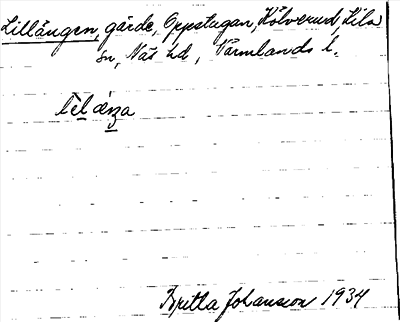 Lillängen, gärde, Oppstugan, Kölverud, Kila
sn, Näs hd, Värmlands l.
Britta Johansson 1934